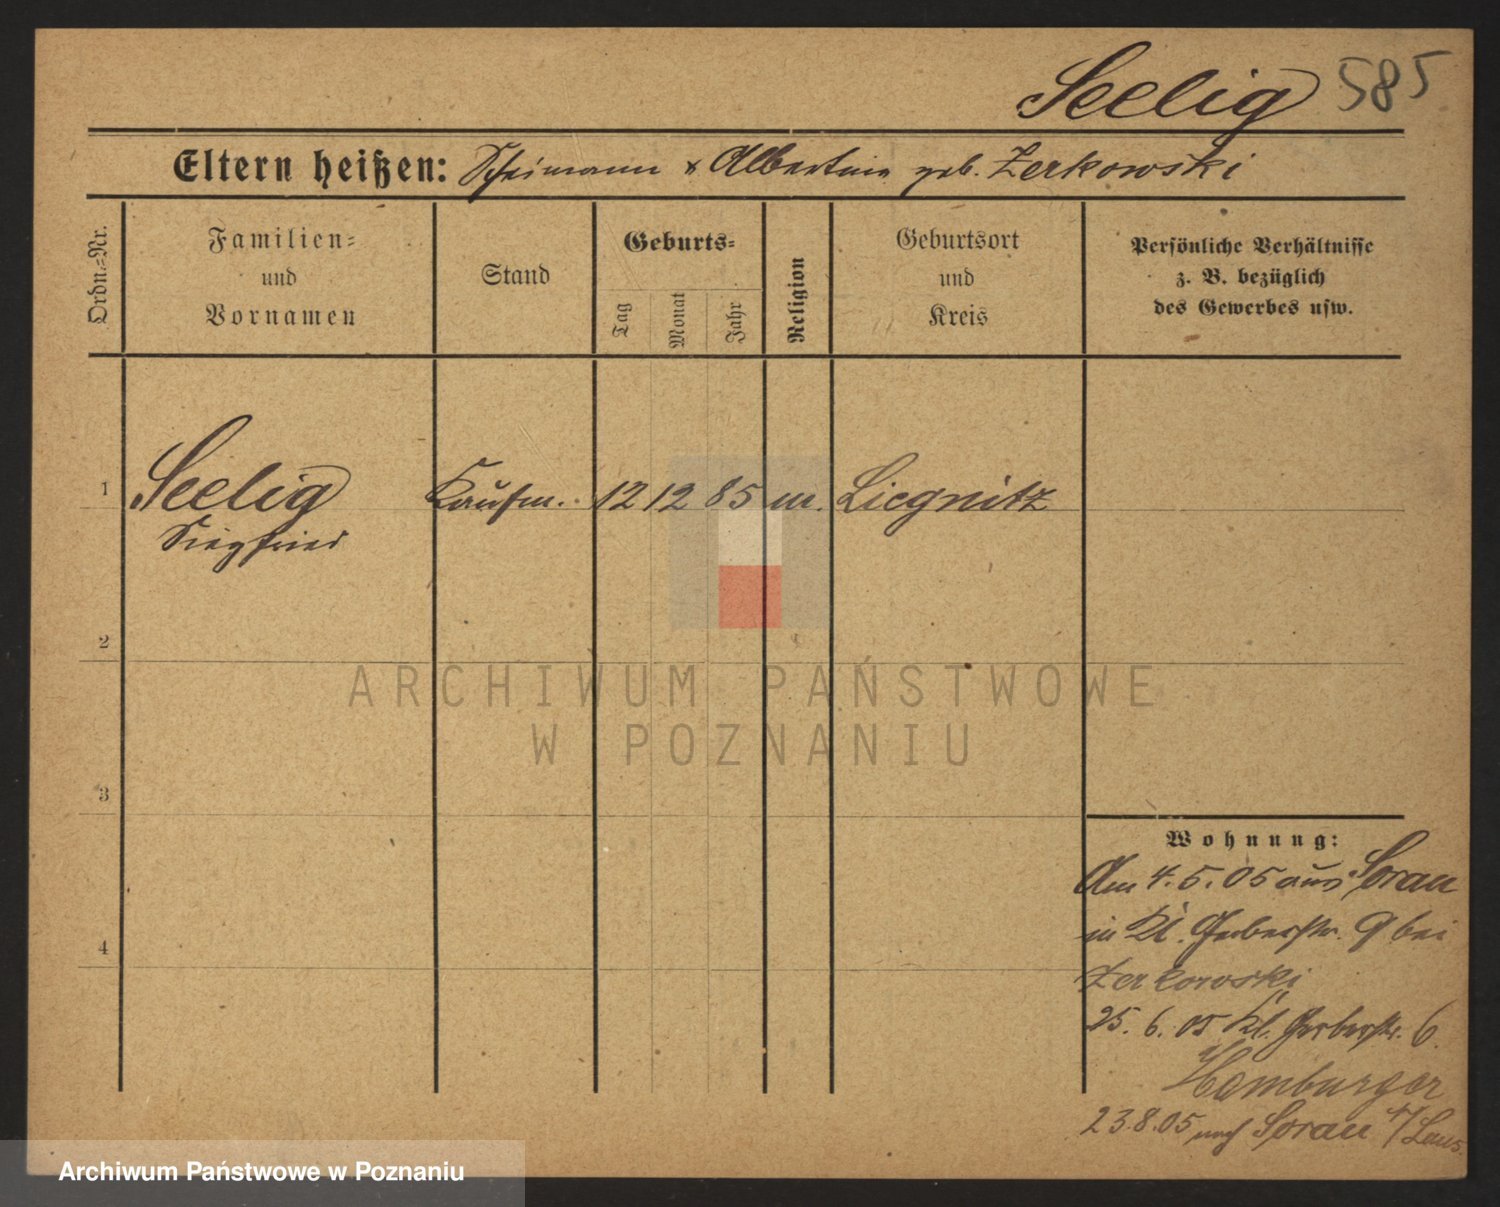 Seelig 585
Eltern heißen: Scheimann & Albertine geb. Zerkowski
Ordn.-Nr.
Familien-
und
Vornamen
Stand
Geburts-
Tag
Monat
Jahr
Religion
Geburtsort
und
Kreis
Persönliche Verhältnisse
z. B. bezüglich
des Gewerbes usw.
1 Seelig Kaufm. 12 12 85 m. Liegnitz
Siegfried
2
ARCHIWUM PAŃSTWOWE
W POZNANIU
3
Wohnung:
Am 4.5.05 aus Sorau
in Kl. Gerberstr. 9 bei
4
Zerkowski
25.6.05 Kl. Gerberstr. 6.
Hamburger
23.8.05 nach Sorau N/Laus.
Archiwum Państwowe w Poznaniu